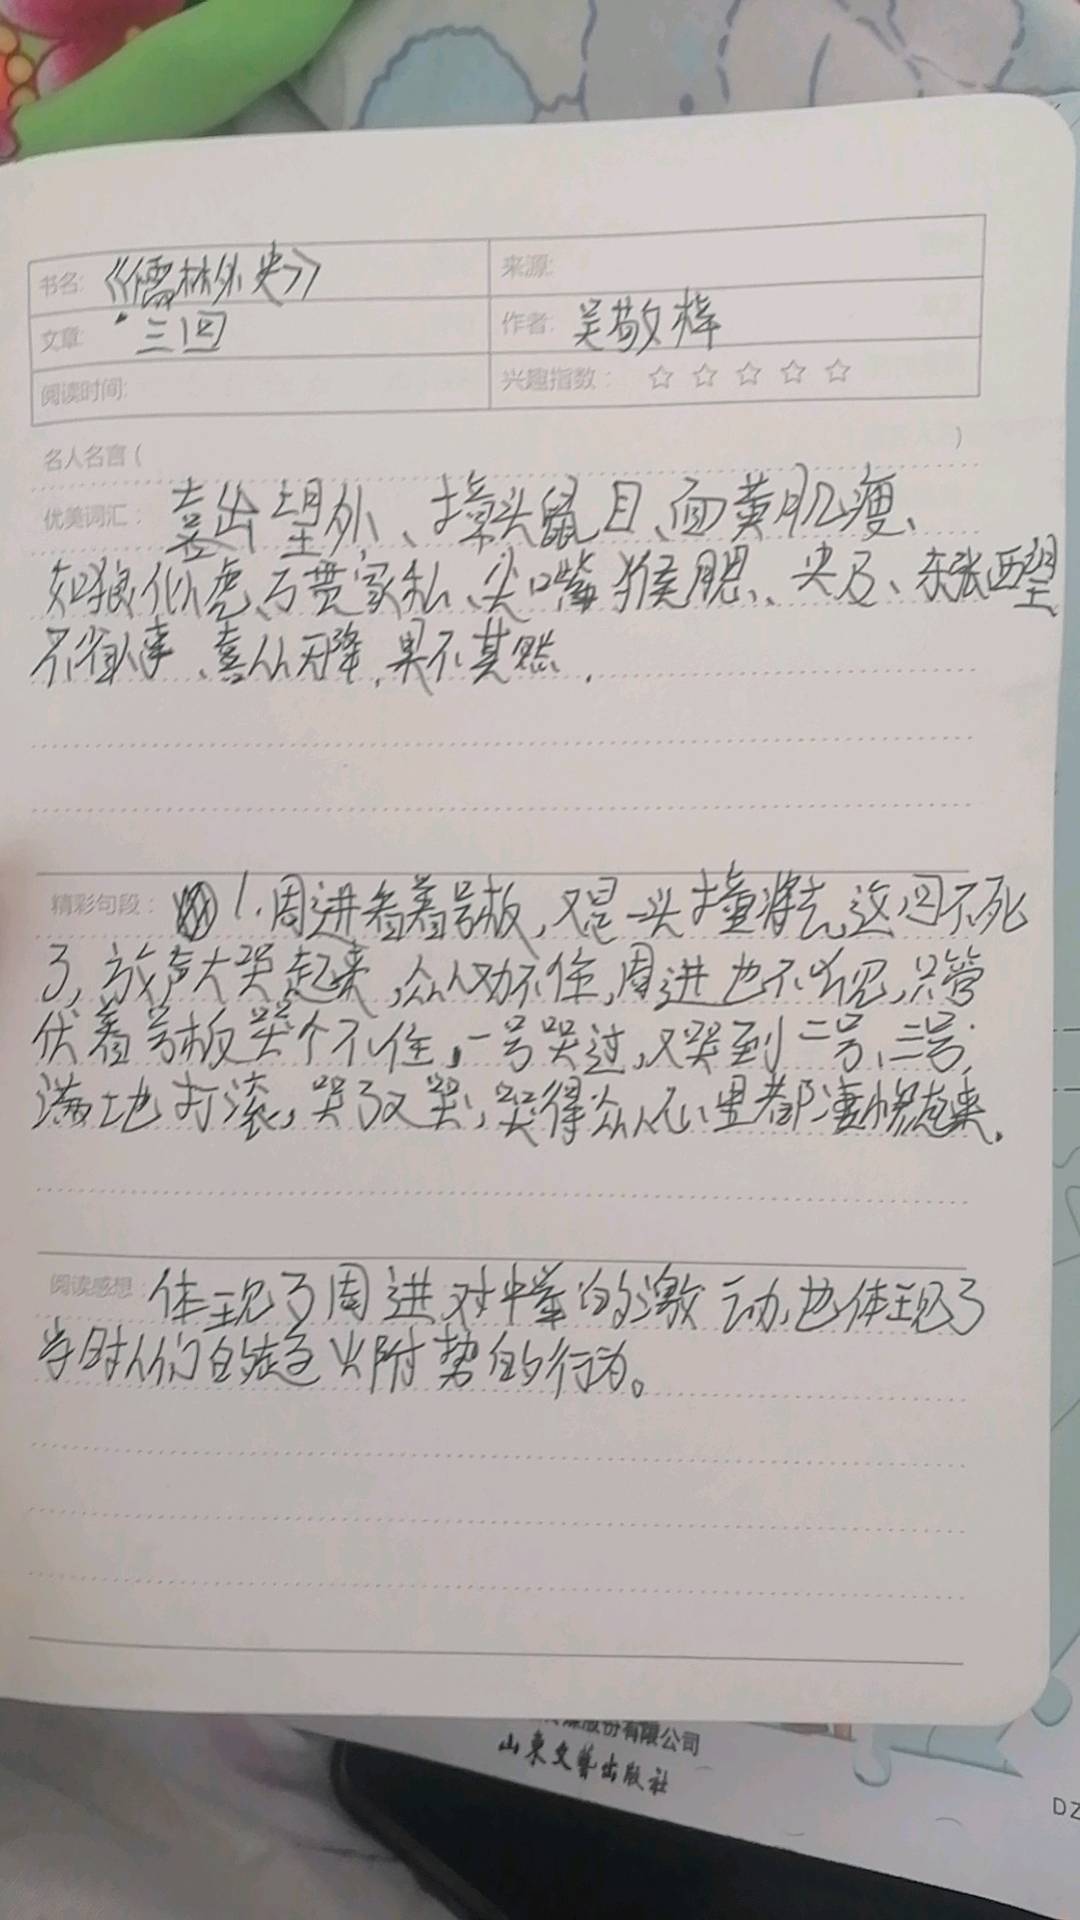 书名: 《儒林外史》 来源:
文章: 三回 作者: 吴敬梓
阅读时间: 兴趣指数: ☆ ☆ ☆ ☆ ☆
名人名言( )
优美词汇: 喜出望外、獐头鼠目、面黄肌瘦、
如狼似虎、万贯家私、尖嘴猴腮、央及、东张西望
不省人事、喜从天降,果不其然.
精彩句段: 1.周进看着号板,又是一头撞将去,这回不死
了,放声大哭起来,众人劝不住,周进也不听见,只管
伏着号板哭个不住,一号哭过,又哭到二号、三号;
满地打滚,哭了又哭,哭得众人心里都凄惨起来.
阅读感想: 体现了周进对中举的激动,也体现了
当时人们的趋炎附势的行为。
股份有限公司
山东文艺出版社
DZ